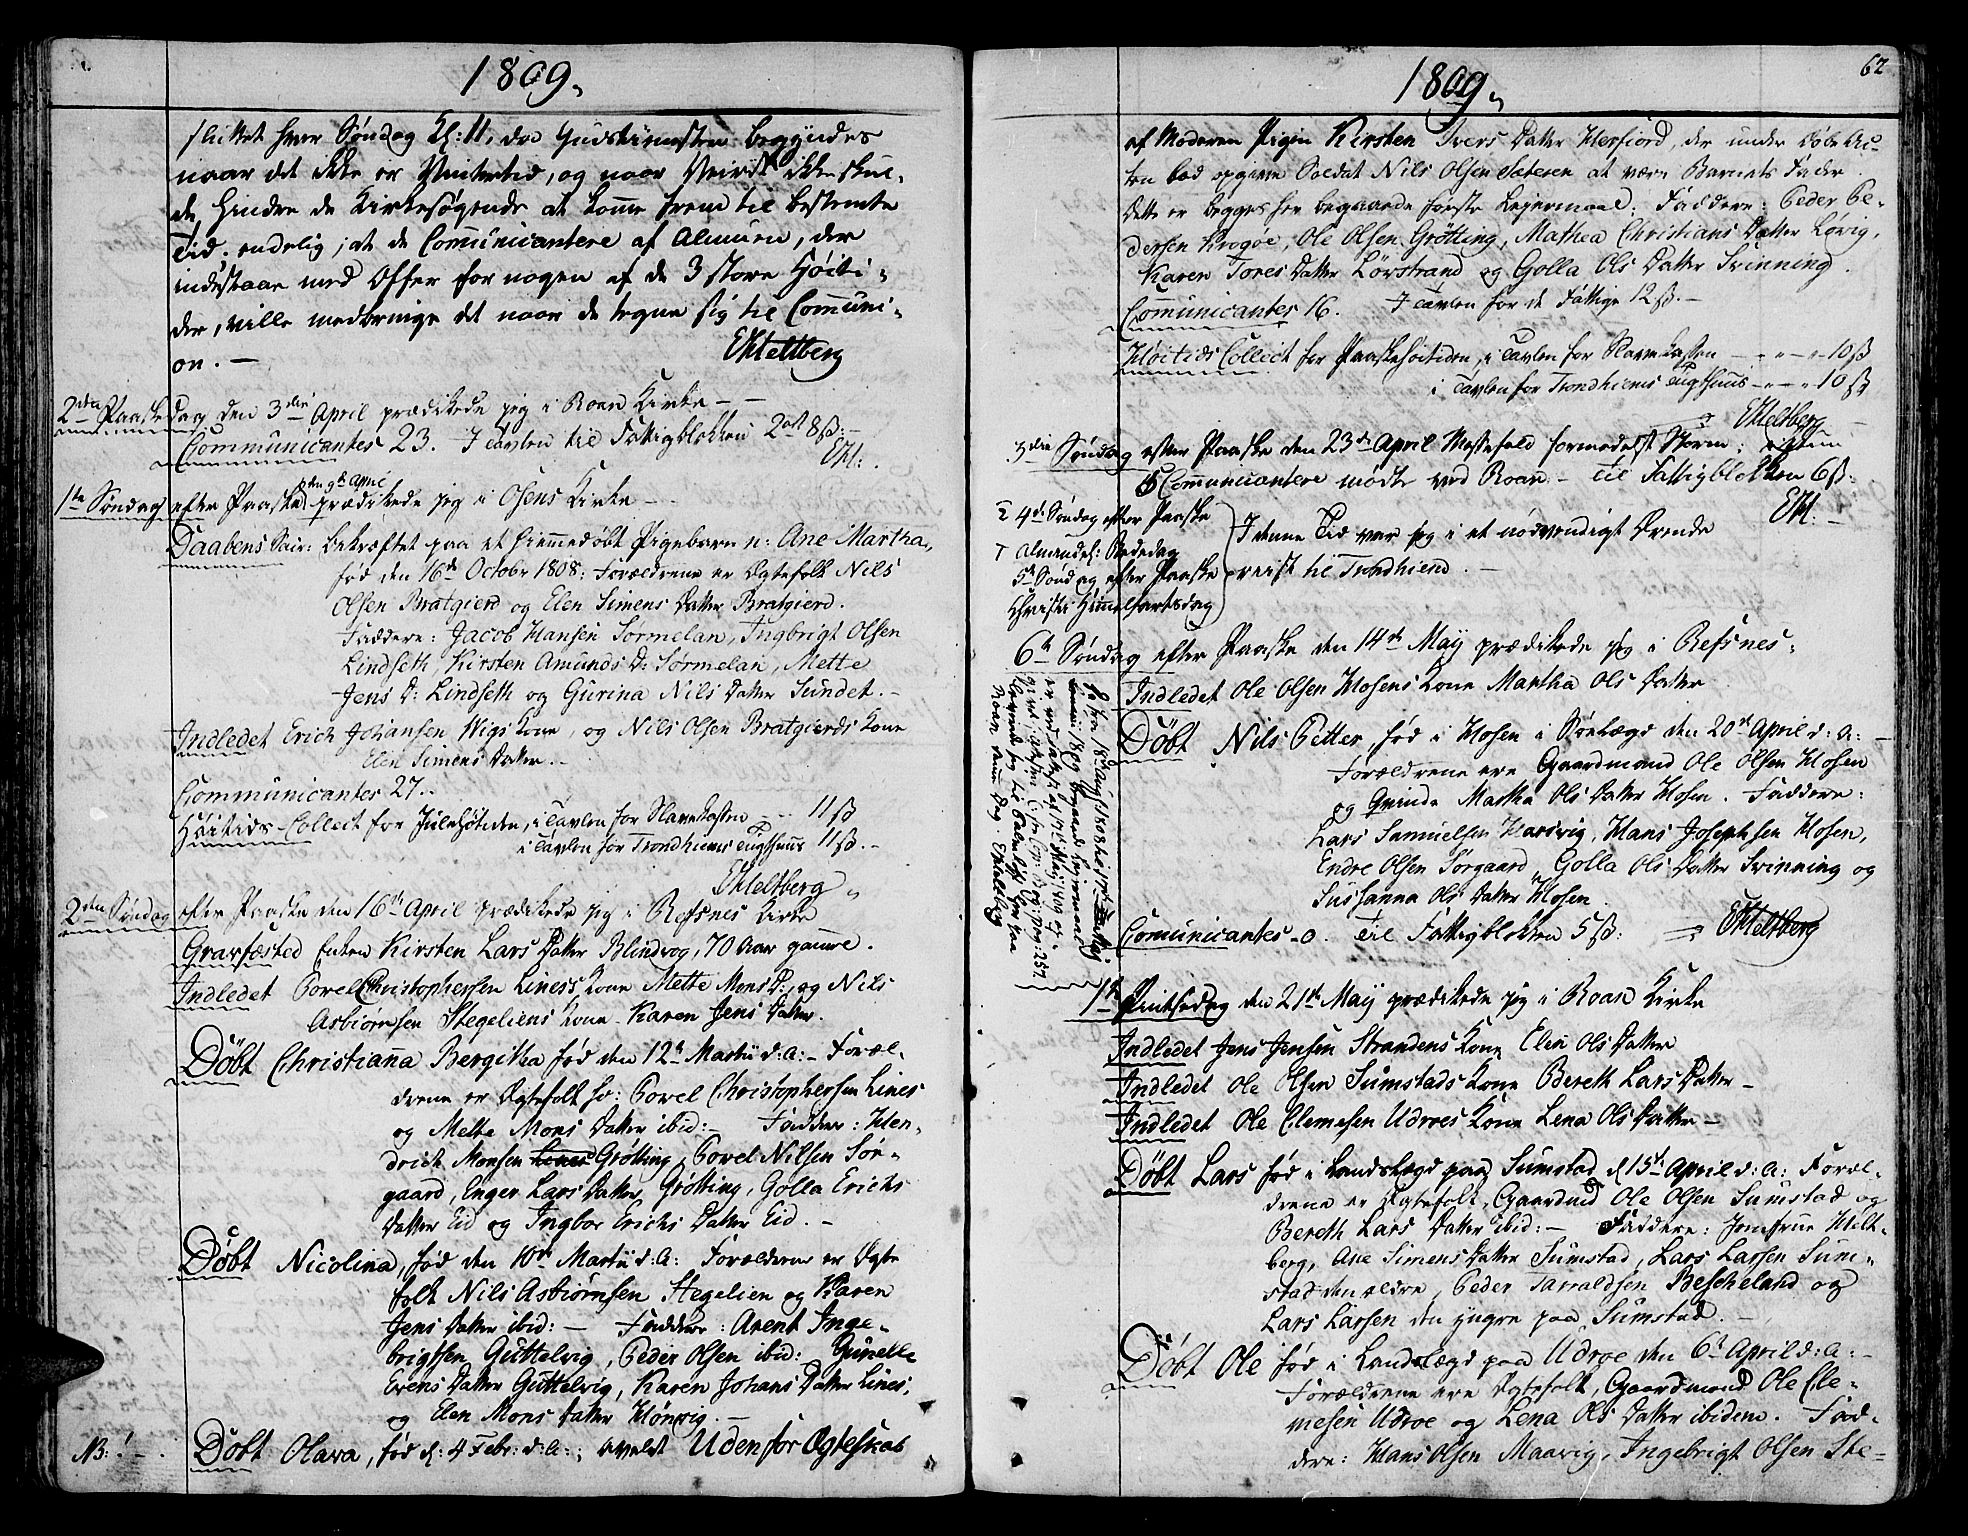 1809.
sluttet hver Søndag Kl: 11, da Gudstienesten begyndes
naar det ikke er Vintertid, og naar Veiret ikke skul-
de hindre de Kirkesøgende at komme frem til bestemte
Tid. endelig, at de Communicantere af Almuen, der
indestaae med Offer for nogen af de 3 store Høiti-
der, ville medbringe det naar de tegne sig til Communi-
on. —
EHeltberg
2den Paaskedag den 3die April prædikede jeg i Roan Kirke — —
Communicantes 23. I Tavlen til Fattigblokken 2 ort 8 ß. —
EH:
1ste Søndag efter Paaske den 9de April prædikede jeg i Osens Kirke —
Daabens Sacr: bekræftet paa et hiemmedøbt Pigebarn n: Ane Martha,
født den 16de Octobr 1808: Forældrene er Ægtefolk Nils
Olsen Bratgierd og Elen Simens Datter Bratgierd.
Faddere: Jacob Hansen Sørmelan, Ingbrigt Olsen
Lindseth, Kirsten Amunds D: Sørmelan, Mette
Jens D: Lindseth og Gurina Nils Datter Sundet. —
Indledet Erich Johansen Wigs Kone, og Nils Olsen Bratgierds Kone
Elen Simens Datter. —
Communicantes 27. .
Høitids-Collect for Julehøitiden, i Tavlen for Slavekassen - - 11 ß
i Tavlen for Trondhiems Tugthuus 11 ß. —
EHeltberg
2den Søndag efter Paaske den 16de April prædikede jeg i Refsnes Kirke
Gravfæsted Enken Kirsten Lars Datter Blindvog, 70 Aar gamme.
Indledet Povel Christophersen Liness Kone Mette Mons D:, og Nils
Asbiørnsen Stegeliens Kone Karen Jens Datter.
Døbt Christianna Bergitha fød den 12te Martii d: a: — Foræl-
drene er Ægtefolk Povel Christophersen Lines
og Mette Mons Datter ibid: — Fadder: Hen-
drich Monsen Grøtting, Povel Nilsen Sør-
gaard, Enger Lars Datter Grøtting, Golla Erichs
Datter Eid og Ingbor Erichs Datter Eid. —
Døbt Nicolina, fød den 10de Martii d: a: Forældrene er Ægte
folk Nils Asbiørnsen Stegelien og Karen
Jens Datter ibid: — Fadder: Arent Inge-
brigtsen Guttelvig, Peder Olsen ibid: Gunelle
Evens Datter Guttelvig, Karen Johans Datter Lines,
og Elen Mons Datter Hønvig. —
NB: ! — Døbt Olava, fød d: 4 Febr: d: a: , avelet Udenfor Ægteskab
1809.
62
af Moderen Pigen Kirsten Ivers Datter Herfiord, der under Døbe Ac-
ten lod opgive Soldat Nils Olsen Sæteren at være Barnets Fader.
Dette er begges her begaaede første Lejermaal. Faddere: Peder Pe-
dersen Krogøe, Ole Olsen Grøtting, Mathea Christians Datter Løvig,
Karen Tores Datter Lørstrand og Golla Ols Datter Svinning.
Communicantes 16. I Tavlen for de Fattige 12 ß. —
Høitids Collect for Paaskehøitiden, i Tavlen for Slavekassen — " — " 10 ß
i Tavlen for Trondhiems Tugthuus — " — " 10 ß
EHeltberg
3die Søndag efter Paaske den 23de April Messefald formedelst Storm;
5 Comunicantere mødte ved Roan — til Fattigblokken 6 ß:
EH: —
4de Søndag efter Paaske
Almindel: Bededag
5te Søndag efter Paaske
Christi Himmelfartsdag
I denne Tid var jeg i et nødvendigt Ærende
reist til Trondhiem. —
6te Søndag efter Paaske den 14de Maij prædikede jeg i Refsnes.
Indledet Ole Olsen Hosens Kone Martha Ols Datter
Døbt Nils Petter, fød i Hosen i Sønlægd den 20de April d: a: —
Forældrene ere Gaardmand Ole Olsen Hosen
og Qvinde Martha Ols Datter Hosen. Faddere:
Lars Samuelsen Harsvig, Hans Josephsen Hosen,
Endre Olsen Sørgaard, Golla Ols Datter Svinning og
Sussanna Ols Datter Hosen.
Comunicantes — o. Til Fattigblokken 5 ß: EHeltberg
1ste Pintsedag den 21de Maij prædikede jeg i Roan Kirke
Indledet Jens Jensen Strandens Kone Elen Ols Datter
Indledet Ole Olsen Sumstads Kone Bereth Lars Datter —
Indledet Ole Clemesen Udroes Kone Lena Ols Datter —
Døbt Lars fød i Landslægd paa Sumstad d: 15de April d: a: Foræl-
drene er Ægtefolk, Gaardmd Ole Olsen Sumstad og
Bereth Lars Datter ibid: — Faddere: Jomfrue Helt-
berg, Ane Simens Datter Sumstad, Lars Larsen Sum-
stad den ældre, Peder Tarraldsen Beskeland og
Lars Larsen den yngre paa Sumstad. —
Døbt Ole fød i Landslægd paa Udroe den 6te April d: a: —
Forældrene ere Ægtefolk, Gaardmand Ole Cle-
mesen Udroe og Lena Ols Datter ibidem. Fad-
dere: Hans Olsen Maavig, Ingebrigt Olsen Ste-